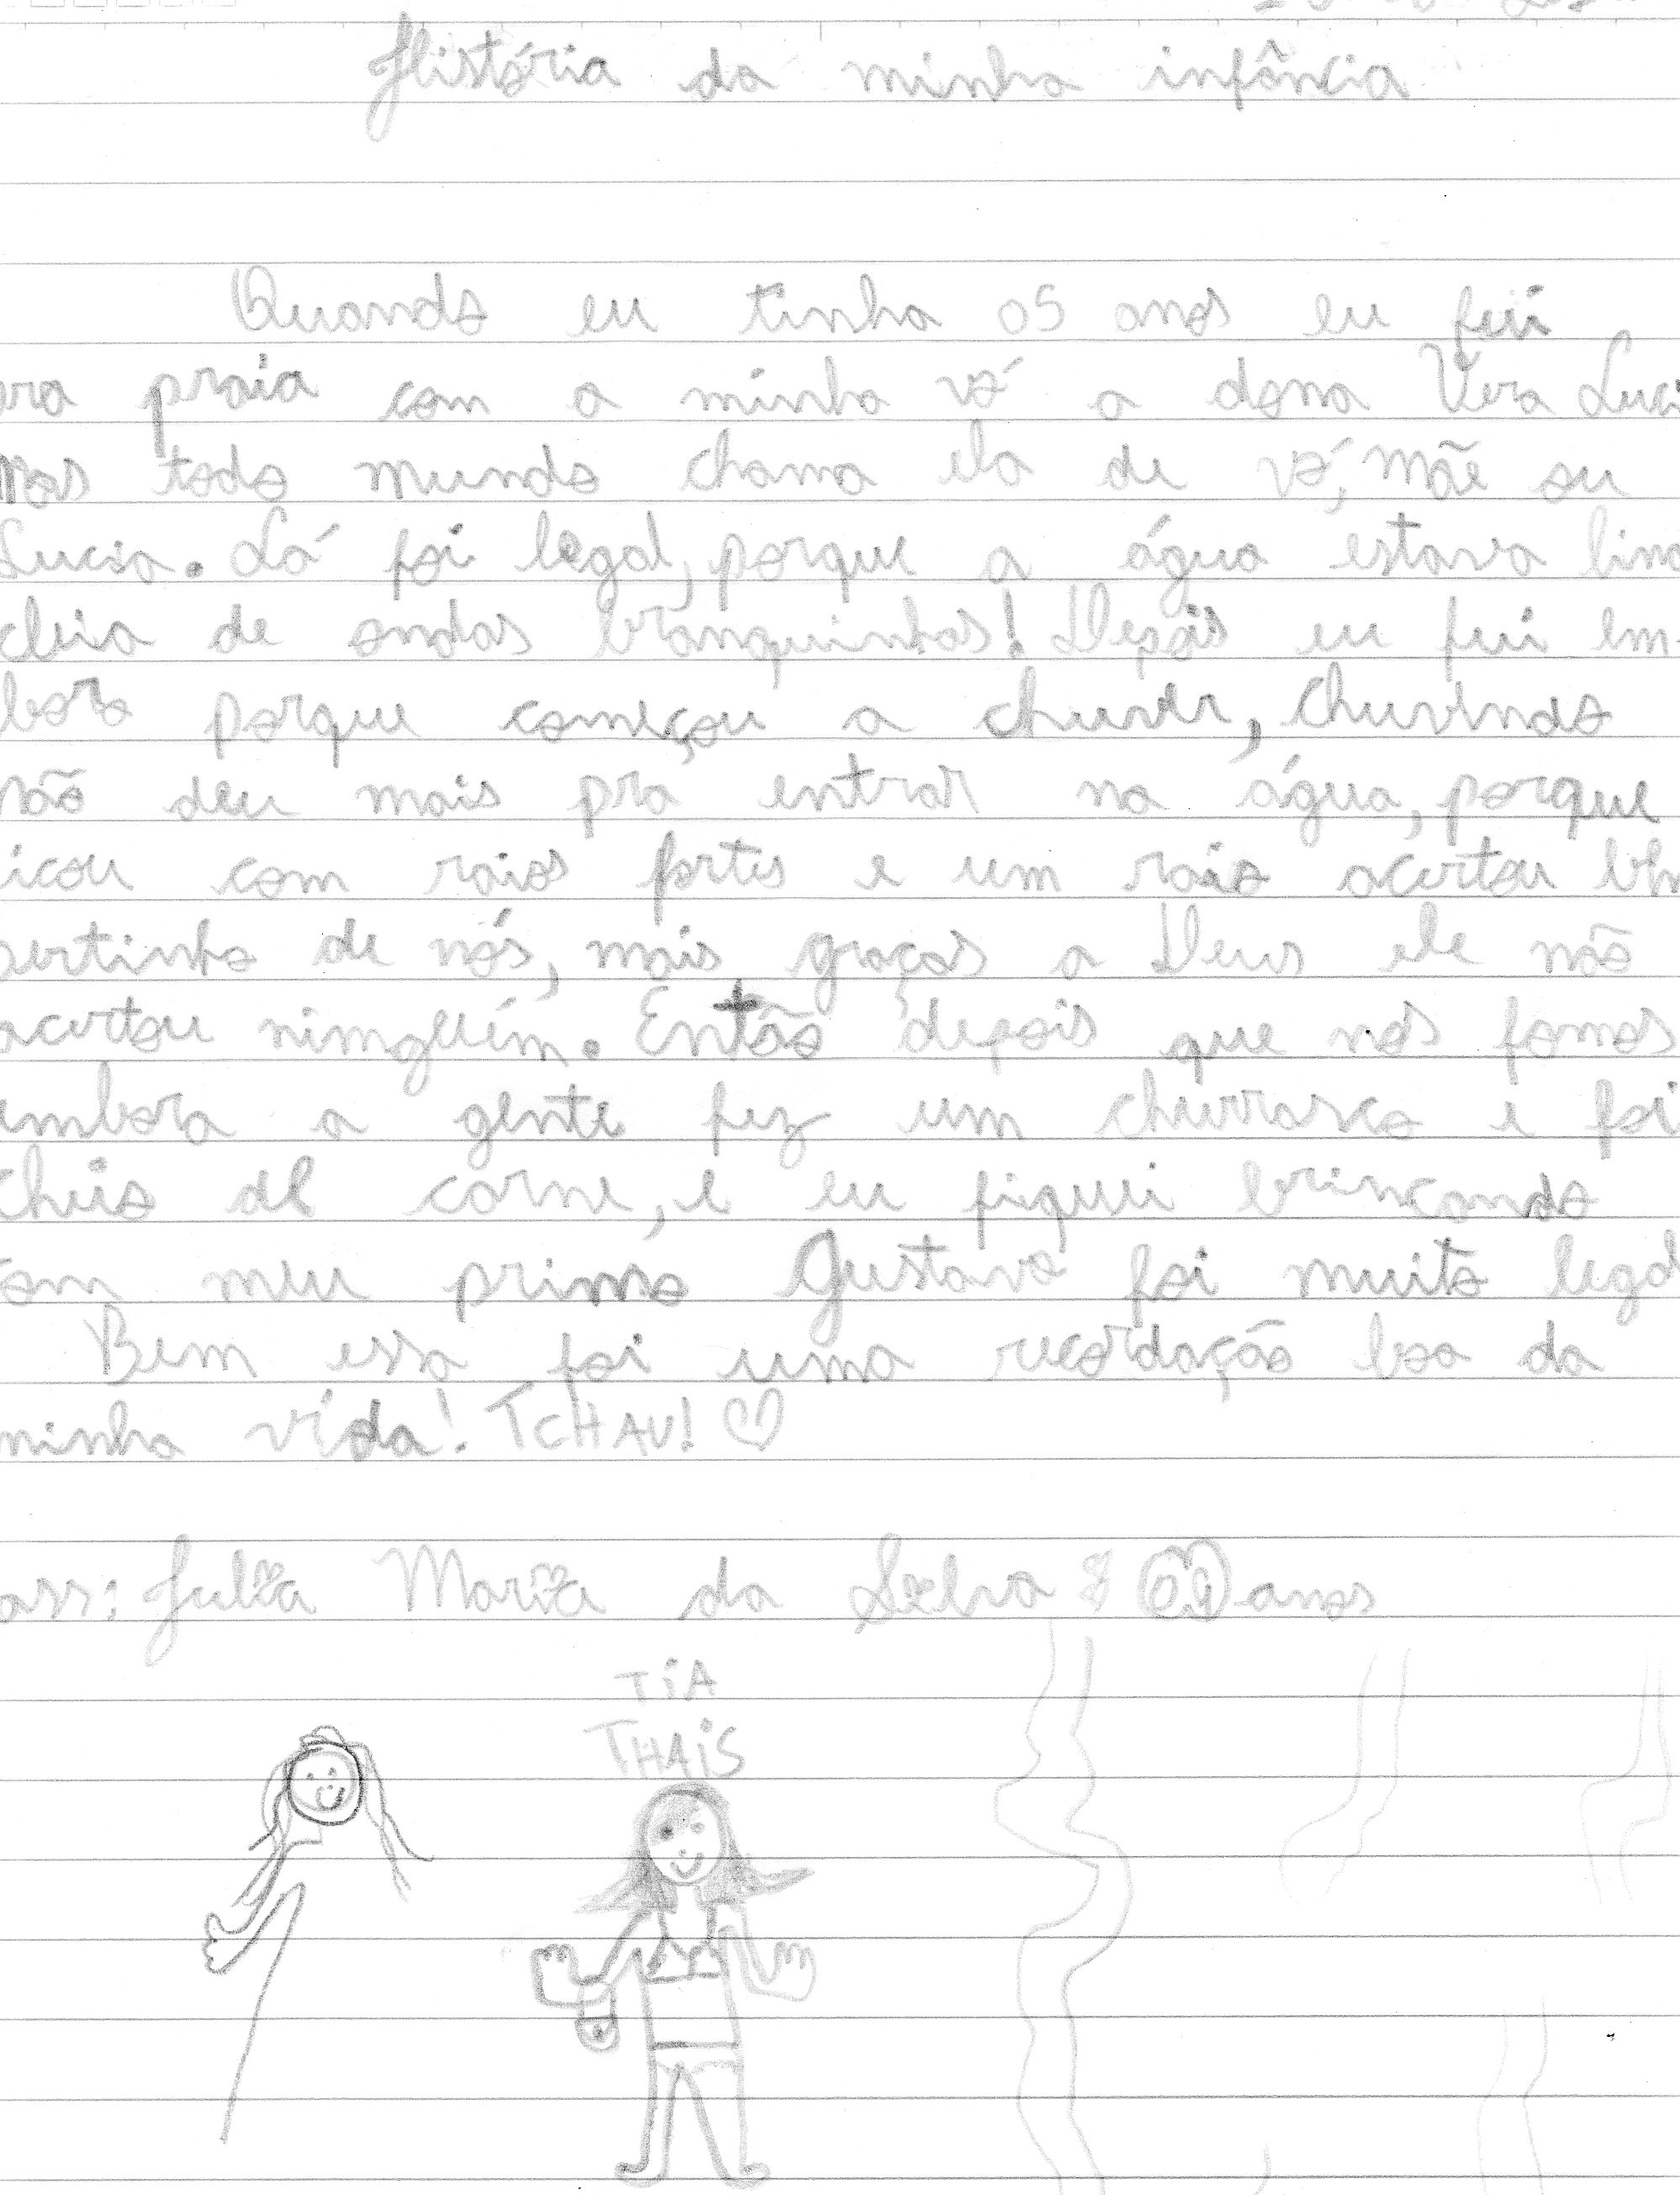 História da minha infância
Quando eu tinha 05 anos eu fui
ra praia com a minha vó a dona Vera Luci
Mas todo mundo chama ela de vó, mãe ou
Lucia. Lá foi legal, porque a água estava lin
cheia de ondas branquinhas! Depois eu fui em-
bora porque começou a chuver, chuvendo
não deu mais pra entrar na água, porque
icou com raios fortes e um raio acertou bem
pertinho de nós, mais graças a Deus ele não
acertou nimguém. Então depois que nós fomos
embora a gente fez um churrasco e foi
cheio de carne, e eu fiquei brincando
om meu primo Gustavo foi muito legal
Bem essa foi uma recordação boa da
minha vida! TCHAU! ♡
ass: Julia Maria da Silva 09 anos
TiA
THAiS